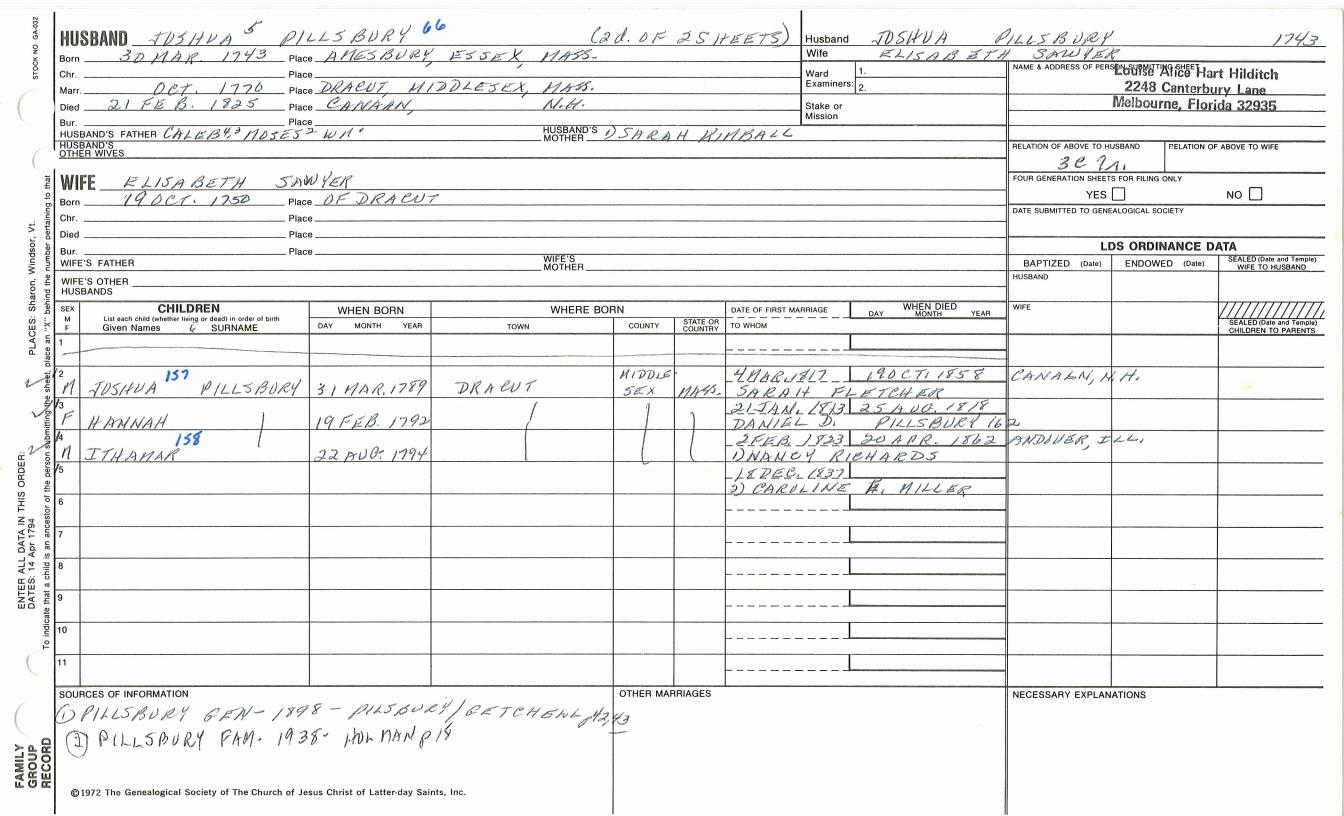 STOCK NO GA-032
HUSBAND JOSHUA 5 PILLSBURY 66 (2d. OF 2 SHEETS)
Born 30 MAR. 1743 Place AMESBURY, ESSEX, MASS.
Chr. Place
Marr. OCT. 1770 Place DRACUT, MIDDLESEX, MASS.
Died 21 FEB. 1825 Place CANAAN, N.H.
Bur. Place
HUSBAND'S FATHER CALEB4, 3 MOSES2 WM1 HUSBAND'S MOTHER 1) SARAH KIMBALL
HUSBAND'S OTHER WIVES
Husband JOSHUA PILLSBURY 1743
Wife ELISABETH SAWYER
Ward Examiners: 1.
2.
Stake or Mission
NAME & ADDRESS OF PERSON SUBMITTING SHEET
Louise Alice Hart Hilditch
2248 Canterbury Lane
Melbourne, Florida 32935
RELATION OF ABOVE TO HUSBAND RELATION OF ABOVE TO WIFE
3C
FOUR GENERATION SHEETS FOR FILING ONLY
YES NO
DATE SUBMITTED TO GENEALOGICAL SOCIETY
WIFE ELISABETH SAWYER
Born 19 OCT. 1750 Place OF DRACUT
Chr. Place
Died Place
Bur. Place
WIFE'S FATHER WIFE'S MOTHER
WIFE'S OTHER HUSBANDS
LDS ORDINANCE DATA
BAPTIZED (Date) ENDOWED (Date) SEALED (Date and Temple) WIFE TO HUSBAND
HUSBAND
WIFE
SEALED (Date and Temple) CHILDREN TO PARENTS
SEX M F CHILDREN WHEN BORN WHERE BORN DATE OF FIRST MARRIAGE WHEN DIED
List each child (whether living or dead) in order of birth
Given Names 6 SURNAME DAY MONTH YEAR TOWN COUNTY STATE OR COUNTRY TO WHOM DAY MONTH YEAR
1
2 M JOSHUA 157 PILLSBURY 31 MAR. 1789 DRACUT MIDDLESEX MASS. 4 MAR. 1817 19 OCT. 1858 CANAAN, N.H.
SARAH FLETCHER
3 F HANNAH 19 FEB. 1792 21 JAN. 1813 25 AUG. 1818
DANIEL D. PILLSBURY 162
4 M ITHAMAR 158 22 AUG. 1794 2 FEB. 1823 20 APR. 1862 ANDOVER, ILL.
1) NANCY RICHARDS
5 18 DEC. 1837
2) CAROLINE E. MILLER
6
7
8
9
10
11
SOURCES OF INFORMATION
1 PILLSBURY GEN- 1898 - PILSBURY/GETCHELL p42,43
2 PILLSBURY FAM. 1938- HOLMAN p18
OTHER MARRIAGES
NECESSARY EXPLANATIONS
©1972 The Genealogical Society of The Church of Jesus Christ of Latter-day Saints, Inc.
FAMILY GROUP RECORD
ENTER ALL DATA IN THIS ORDER:
DATES: 14 Apr 1794 PLACES: Sharon, Windsor, Vt.
To indicate that a child is an ancestor of the person submitting the sheet, place an "X" behind the number pertaining to that